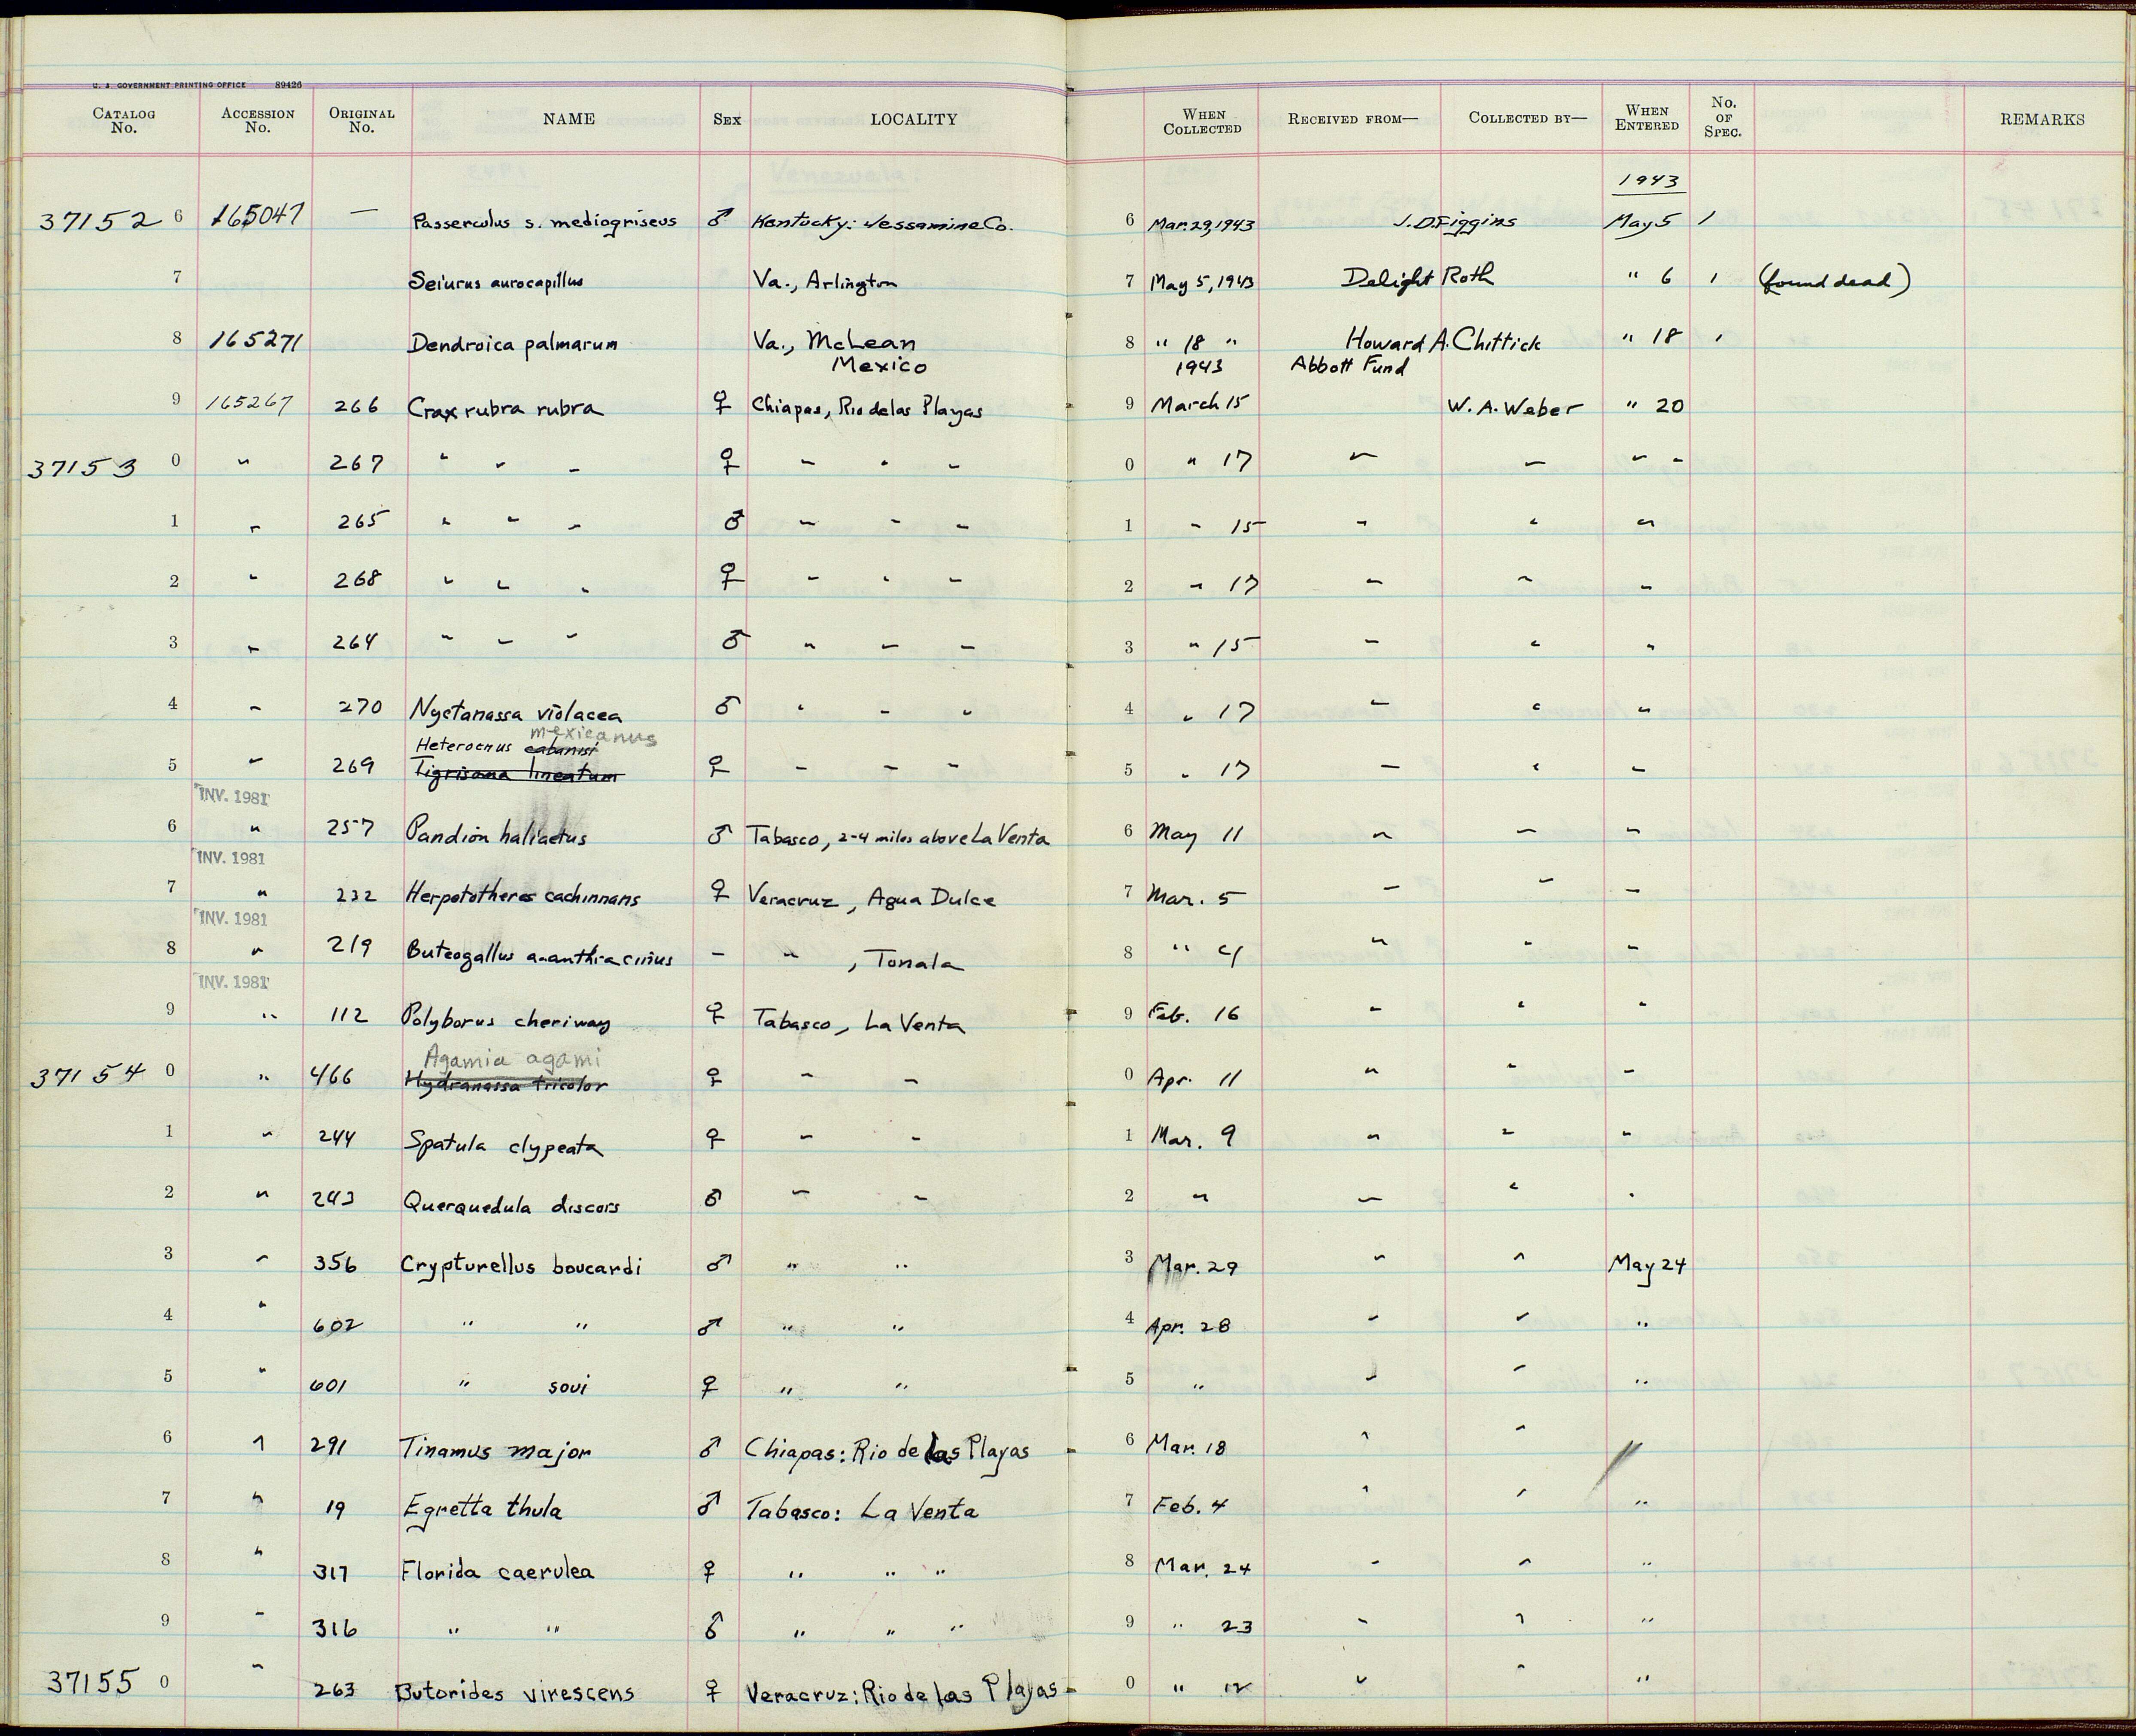 U. S. GOVERNMENT PRINTING OFFICE 89426
CATALOG No. ACCESSION No. ORIGINAL No. NAME SEX LOCALITY WHEN COLLECTED RECEIVED FROM— COLLECTED BY— WHEN ENTERED No. OF SPEC. REMARKS
1943
37152 6 165047 — Passerculus s. mediogriseus ♂ Kentucky: Jessamine Co. 6 Mar. 29, 1943 J.D. Figgins May 5 1
7 Seiurus aurocapillus Va., Arlington 7 May 5, 1943 Delight Roth " 6 1 (found dead)
8 165271 Dendroica palmarum Va., McLean 8 " 18 " Howard A. Chittick " 18 1
Mexico 1943 Abbott Fund
9 165267 266 Crax rubra rubra ♀ Chiapas, Rio de las Playas 9 March 15 W. A. Weber " 20
37153 0 " 267 " " " ♀ " " " 0 " 17 " " " "
1 " 265 " " " ♂ " " " 1 " 15 " " "
2 " 268 " " " ♀ " " " 2 " 17 " " "
3 " 264 " " " ♂ " " " 3 " 15 " " "
4 " 270 Nyctanassa violacea ♂ " " " 4 " 17 " " "
mexicanus
Heterocnus cabanisi
5 " 269 Tigrisoma lineatum ♀ " " " 5 " 17 " " "
INV. 1981
6 " 257 Pandion haliaetus ♂ Tabasco, 2-4 miles above La Venta 6 May 11 " " "
INV. 1981
7 " 232 Herpetotheres cachinnans ♀ Veracruz, Agua Dulce 7 Mar. 5 " " "
INV. 1981
8 " 219 Buteogallus a. anthracinus – " , Tonala 8 " 4 " " "
INV. 1981
9 " 112 Polyborus cheriway ♀ Tabasco, La Venta 9 Feb. 16 " " "
Agamia agami
37154 0 " 466 Hydranassa tricolor ♀ " " 0 Apr. 11 " " "
1 " 244 Spatula clypeata ♀ " " 1 Mar. 9 " " "
2 " 243 Querquedula discors ♂ " " 2 " " " "
3 " 356 Crypturellus boucardi ♂ " " 3 Mar. 29 " " May 24
4 " 602 " " ♂ " " 4 Apr. 28 " " "
5 " 601 " soui ♀ " " 5 " " " "
6 " 291 Tinamus major ♂ Chiapas: Rio de las Playas 6 Mar. 18 " " "
7 " 19 Egretta thula ♂ Tabasco: La Venta 7 Feb. 4 " " "
8 " 317 Florida caerulea ♀ " " " 8 Mar. 24 " " "
9 " 316 " " ♂ " " " 9 " 23 " " "
37155 0 " 263 Butorides virescens ♀ Veracruz: Rio de las Playas 0 " 12 " " "